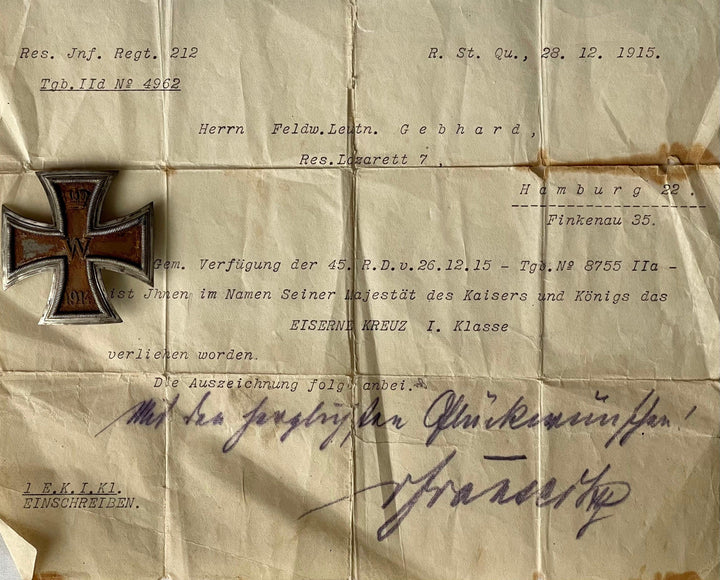 Res. Jnf. Regt. 212
R. St. Qu., 28. 12. 1915.
Tgb. IId Nº 4962
Herrn Feldw.Leutn. Gebhard,
Res.Lazarett 7,
Hamburg 22.
Finkenau 35.
Gem. Verfügung der 45. R.D.v.26.12.15 - Tgb.Nº 8755 IIa -
ist Jhnen im Namen Seiner Majestät des Kaisers und Königs das
EISERNE KREUZ I. Klasse
verliehen worden.
Die Auszeichnung folgt anbei.
Mit den herzlichsten Glückwünschen!
1 E.K.I.Kl.
EINSCHREIBEN.
W
1914